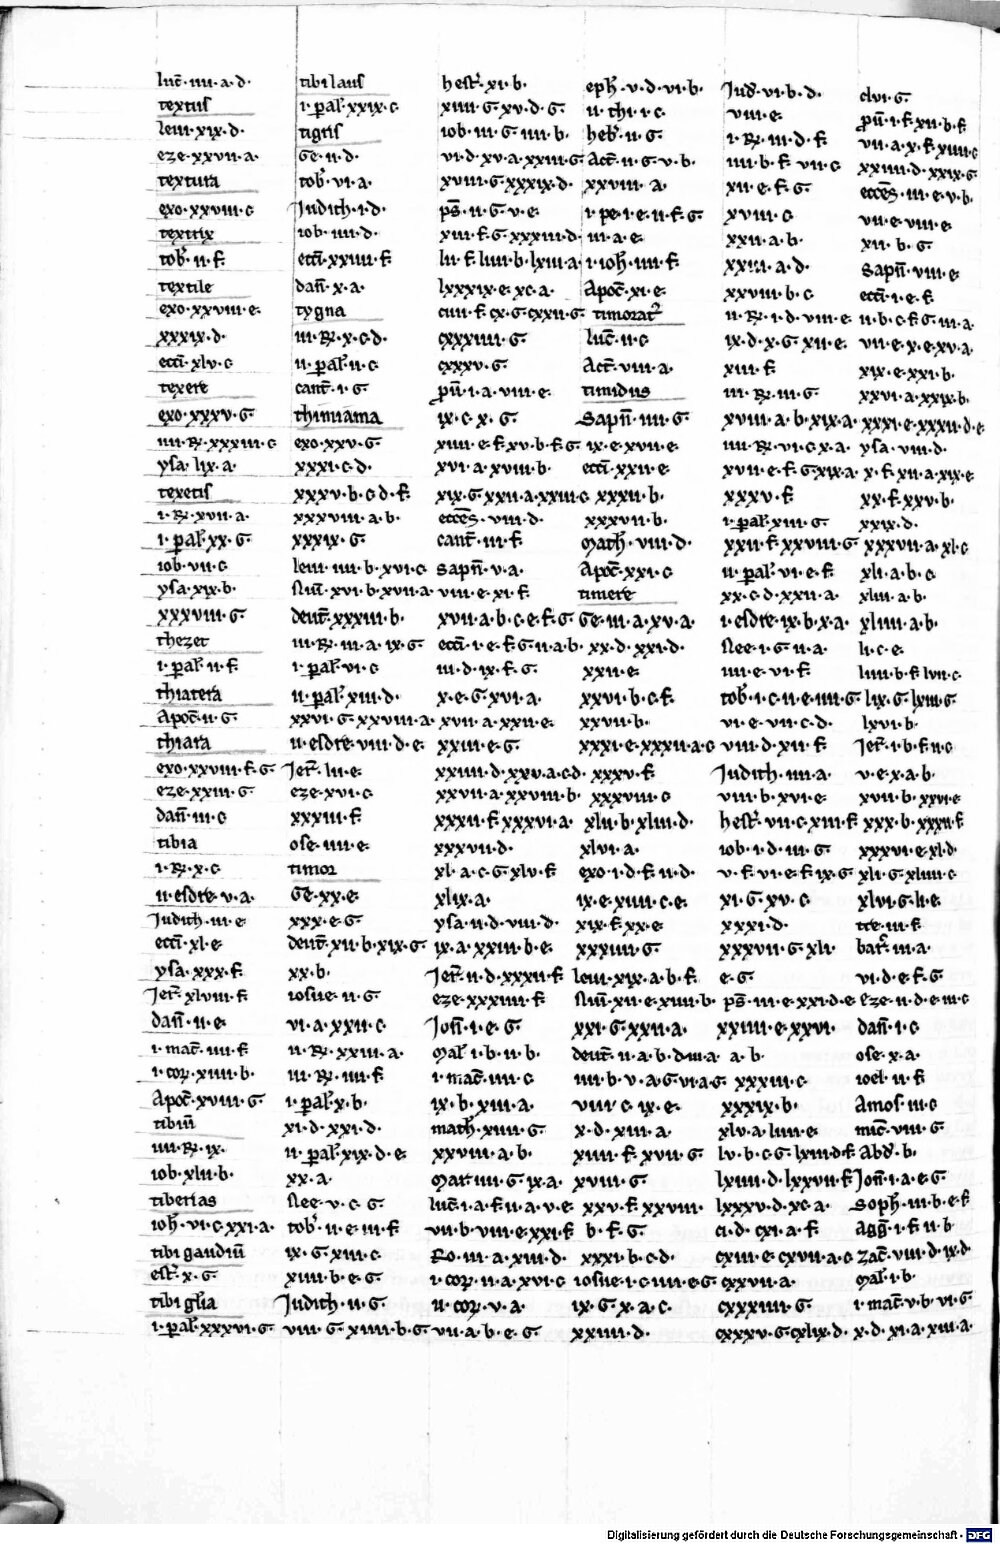 luc̄·iiii·a·d·
textus
leui·xix·d·
eze·xxvii·a·
textura
exo·xxviii·c
textrix
tob̓·ii·f·
textile
exo·xxviii·e·
xxxix·d·
ecci̅·xlv·c
texere
exo·xxxv·G
iiii·R·xxxiii·c
ysa·lix·a·
texetis
i·R·xvii·a·
i·pal̓·xx·G
iob·vii·c
ysa·xix·b·
xxxviii·G
thezet
i·pal̓·ii·f
thiatera
Apoc̄·ii·G·
thiara
exo·xxviii·f·G
eze·xxiii·G
dan̄·iii·c
tibia
i·R·x·c
ii·esdre·v·a·
Judith·iii·e
ecci̅·xl·e
ysa·xxx·f
Jer̄·xlviii·f
dan̄·ii·e·
i·mac̄·iiii·f
i·cor·xiiii·b·
Apoc̄·xviii·G
tibiu̅
iiii·R·ix·
iob·xlii·b·
tiberias
ioh̓·vi·c·xxi·a·
tibi gaudiu̅
est̓·x·G
tibi gl̓ia
i·pal̓·xxxvi·G
tibi laus
i·pal̓·xxix·c
tigris
Ge·ii·d·
tob̓·vi·a·
Judith·i·d·
iob·iiii·d·
ecci̅·xxiiii·f
dan̄·x·a·
tygna
iii·R·x·c·d·
ii·pal̓·ii·c
cant̄·i·G
thimiama
exo·xxv·G
xxxi·c·d·
xxxv·b·c·d·f
xxxviii·a·b·
xxxix·G
leui·iiii·b·xvi·c
Nu̅·xvi·b·xvii·a
deut̄·xxxiii·b·
iii·R·iii·a·ix·G
i·pal̓·vi·c
ii·pal̓·xiii·d·
xxvi·G·xxviii·a·
ii·esdre·viii·d·e
Jer̄·lii·e
eze·xvi·c
xxxiii·f
ose·iiii·e
timor
Ge·xx·e
xxx·e·G
deut̄·xii·b·xix·G
xx·b·
iosue·ii·G
vi·a·xxii·c
ii·R·xxiii·a
iii·R·iiii·f
i·pal̓·x·b·
xi·d·xxi·d·
ii·pal̓·xix·d·e
xx·a·
Nee·v·c·G
tob̓·ii·e·iii·f
ix·G·xiii·c
xiiii·b·e·G
Judith·ii·G
viii·G·xiiii·b·G
hest̓·xi·b·
xiiii·G·xv·d·G
iob·iii·G·iiii·b·
vi·d·xv·a·xxiii·G
xviii·G·xxxix·d·
ps̄·ii·G·v·e·
xiii·f·G·xxxiii·d
lii·f·liiii·b·lxiii·a
lxxxix·e·xc·a·
ciiii·f·cx·G·cxxii·G
cxxxiiii·G
cxxxv·G
pu̅·i·a·viii·e·
ix·c·x·G
xiiii·e·f·xv·b·f·G
xvi·a·xviii·b·
xix·G·xxii·a·xxiii·c
ecces̄·viii·d·
cant̄·iii·f
sapn̄·v·a·
viii·e·xi·f·
xvii·a·b·c·e·f·G
ecci̅·i·e·f·G·ii·a·b·
iii·d·ix·f·G
x·e·G·xvi·a·
xvii·a·xxii·e·
xxiii·e·G
xxiiii·d·xxv·a·c·d·
xxvii·a·xxviii·b·
xxxii·f·xxxvi·a
xxxvii·d·
xl·a·c·G·xlv·f
xlix·a·
ysa·ii·d·viii·d·
ix·a·xxiii·b·e
Jer̄·ii·d·xxxii·f
eze·xxxiiii·f
Jon̄·i·e·G
mal̓·i·b·ii·b·
i·mac̄·iiii·c
ix·b·xiii·a·
math̓·xiiii·G
xxviii·a·b·
mar·iiii·G·ix·a
luc̄·i·a·f·ii·a·v·e
vii·b·viii·e·xxi·f
Ro·iii·a·xiii·d·
i·cor·ii·a·xvi·c
ii·cor·v·a·
vii·a·b·e·G
eph̓·v·d·vi·b·
ii·thi·i·c
heb̓·ii·G
Act̄·ii·G·v·b·
xxviii·a·
i·pe·i·e·ii·f·G
iii·a·e·
i·ioh̓·iiii·f
Apoc̄·xi·e
timorat̓
luc̄·ii·c
Act̄·viii·a·
timidus
Sapn̄·iiii·G
ix·e·xvii·e·
ecci̅·xxii·e
xxxii·b·
xxxvii·b·
math̓·viii·d·
Apoc̄·xxi·c
timere
Ge·iii·a·xv·a·
xx·d·xxi·d·
xxii·e·
xxvi·b·c·f
xxvii·b·
xxxi·e·xxxii·a·c
xxxv·f
xxxviii·c
xlii·b·xliii·d·
xlvi·a·
exo·i·d·f·ii·d·
ix·e·xiiii·c·e·
xix·f·xx·e
xxxiiii·G
leui·xix·a·b·f
Nu̅·xii·e·xiiii·b·
xxi·G·xxii·a·
deut̄·ii·a·b·d·iii·a
iiii·b·v·a·G·vi·a·G
viii·c·ix·e·
x·d·xiii·a·
xiiii·f·xvii·G
xviii·G
xxv·f·xxviii·
b·f·G
xxxi·b·c·d·
iosue·i·c·iiii·e·G
ix·G·x·a·c·
xxiiii·d·
Jud̄·vi·b·d·
viii·e·
i·R·iii·d·f
iiii·b·f·vii·c
xii·e·f·G
xviii·c
xxii·a·b·
xxiii·a·d·
xxviii·b·c
ii·R·i·d·viii·e
ix·d·x·G·xii·e·
xiii·f
iii·R·iii·G
xviii·a·b·xix·a·
iiii·R·vi·c·x·a
xvii·e·f·G·xix·a
xxxv·f
i·pal̓·xiii·G
xxii·f·xxviii·G
ii·pal̓·vi·e·f
xx·c·d·xxii·a·
i·esdre·ix·b·x·a·
Nee·i·G·ii·a·
iiii·e·vi·f·
tob̓·i·c·ii·e·iiii·G
vi·e·vii·c·d·
viii·d·xii·f
Judith·iiii·a·
viii·b·xvi·e·
hest̓·vii·c·xiii·f
iob·i·d·iii·G·
v·f·vi·e·f·ix·G
xi·G·xv·c
xxxi·d·
xxxvii·G·xli·
e·G
ps̄·iii·e·xxi·d·e
xxiiii·e·xxvi·
a·b·
xxxiii·c
xxxix·b·
xlv·a·liiii·e
lv·b·c·G·lxiii·d·f
lxiiii·d·lxxvii·f
lxxxv·d·xc·a
ci·d·cxi·a·f
cxiii·e·cxvii·a·c
cxxvii·a·
cxxxiiii·G
cxxxv·G·cxlix·d·
clvi·G
pu̅·i·f·xii·b·f
vii·a·x·f·xiiii·c
xxiiii·d·xxix·G
ecces̄·iii·e·v·b
vii·e·viii·e
xii·b·G
sapn̄·viii·e
ecci̅·i·e·f
ii·b·c·f·G·iii·a
vii·e·x·e·xv·a
xix·e·xxi·b·
xxvi·a·xxix·b
xxxi·e·xxxii·d·e
ysa·viii·d·
x·f·xii·a·xix·e
xx·f·xxv·b·
xxix·d·
xxxvii·a·xl·c
xli·a·b·c
xliii·a·b·
xliiii·a·b·
li·c·e·
liiii·b·f·lvii·c
lix·G·lxiii·G
lxvi·b·
Jer̄·i·b·f·ii·c
v·e·x·a·b·
xvii·b·xxvi·e
xxx·b·xxxii·f
xxxvi·e·xl·d·
xli·G·xliiii·c
xlvi·G·li·e
tre·iii·f·
bar̓·iii·a·
vi·d·e·f·G
eze·ii·d·e·iii·c
dan̄·i·c
ose·x·a·
ioel·ii·f
Amos·iii·c
mic̄·viii·G
Abd̓·b·
Jon̄·i·a·e·G
Soph̓·iii·b·e·f
Agg̓·i·f·ii·b
zac̄·viii·d·ix·d
mal̓·i·b
i·mac̄·v·b·vi·G
x·d·xi·a·xiii·a·
Digitalisierung gefördert durch die Deutsche Forschungsgemeinschaft - DFG